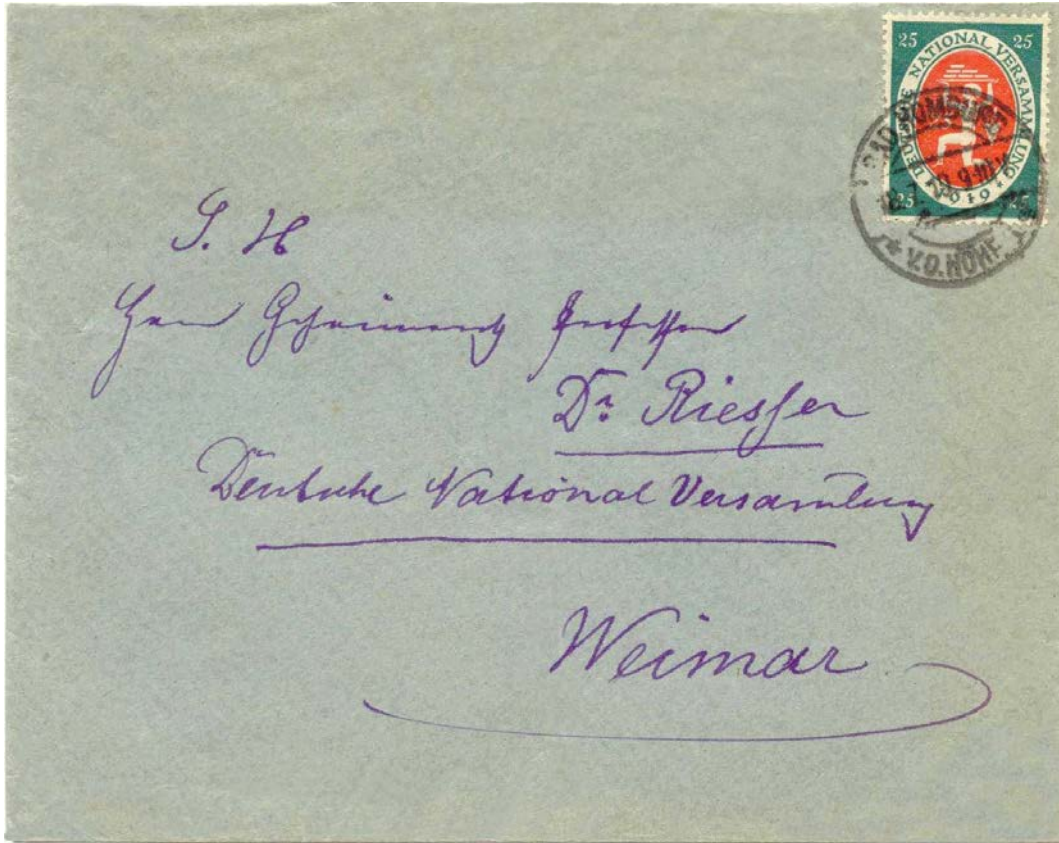 25 25
DEUTSCHE NATIONAL VERSAMMLUNG
1919
25 25
BAD HOMBURG
V.D. HÖHE
S. H
Herrn Geheimrath Professor
Dr. Riesser
Deutsche National Versamlung
Weimar